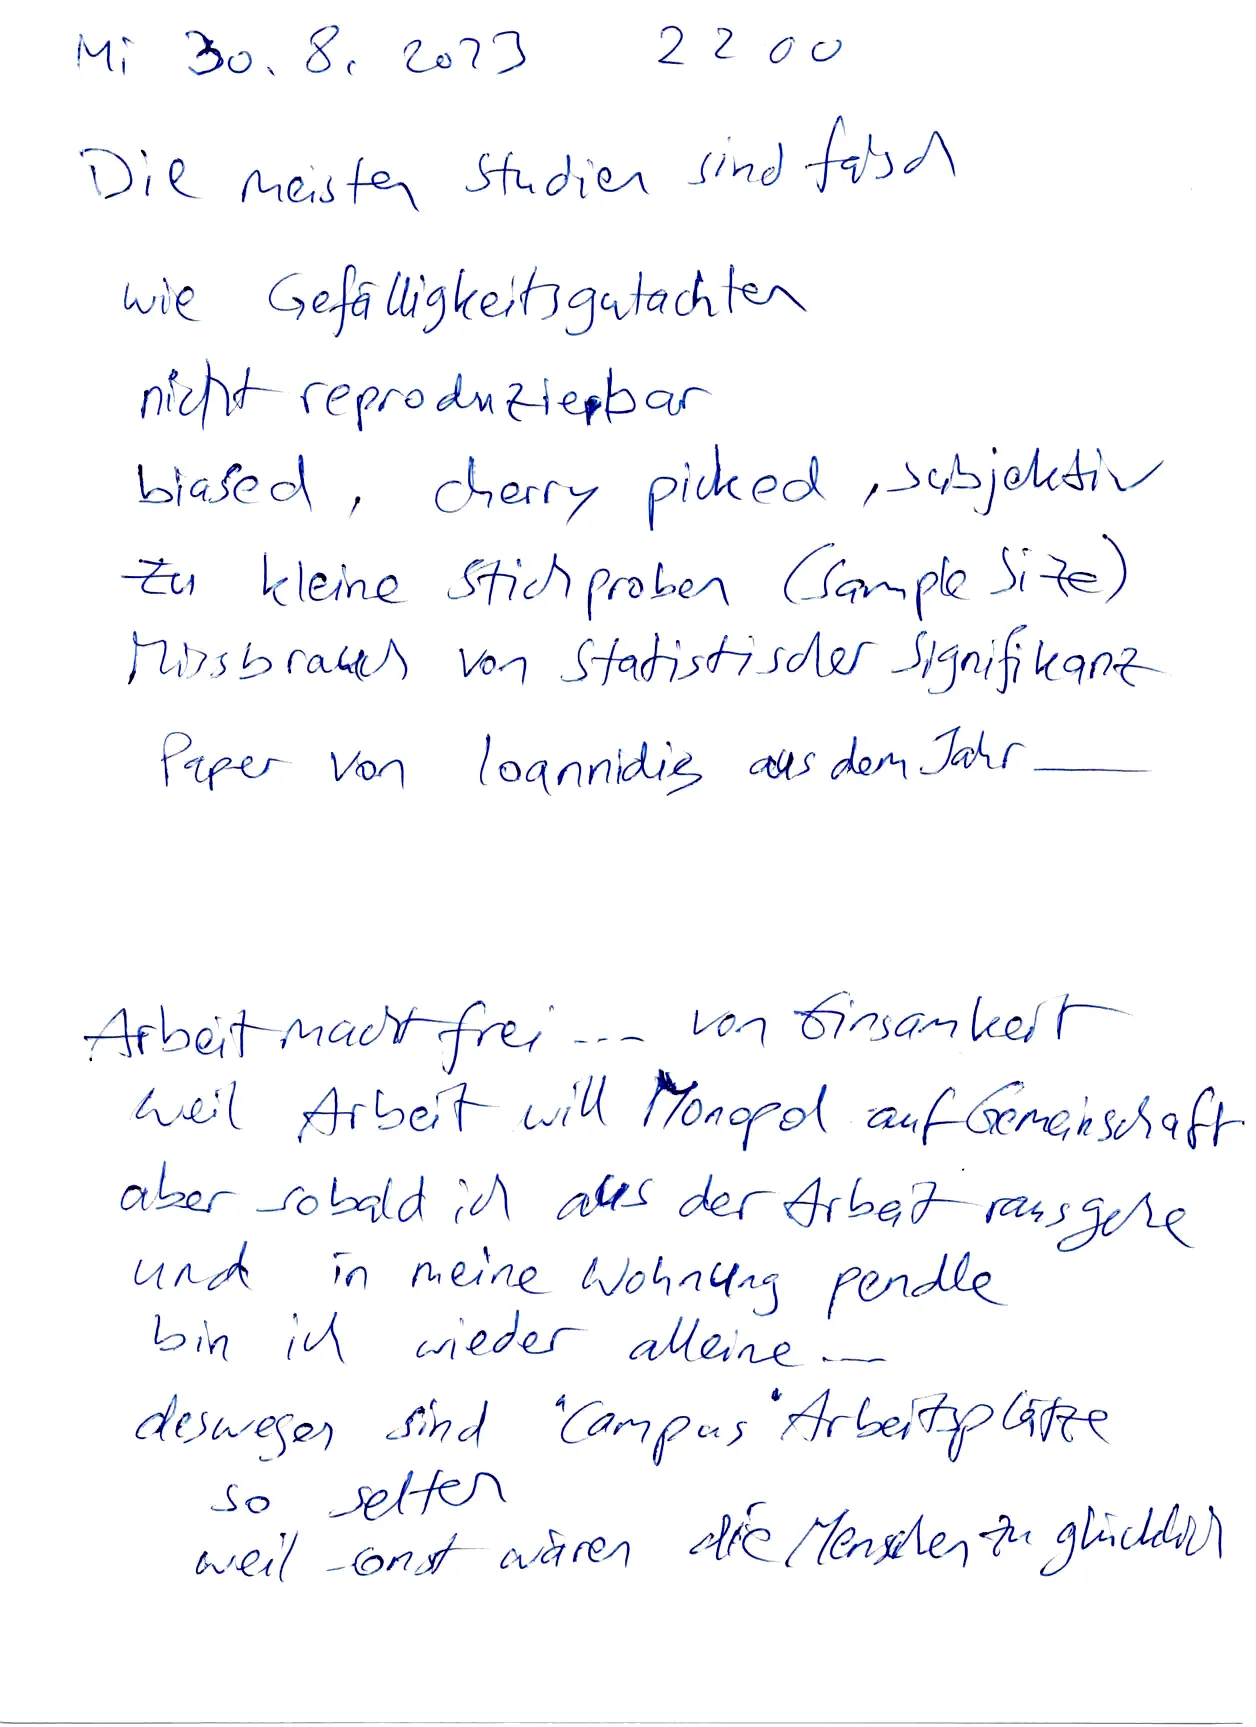 Mi 30. 8. 2023 2200
Die meisten Studien sind falsch
wie Gefälligkeitsgutachten
nicht reproduzierbar
biased, cherry picked, subjektiv
zu kleine Stichproben (Sample Size)
Missbrauch von statistischer Signifikanz
Paper von Ioannidis aus dem Jahr ___
Arbeit macht frei ... von Einsamkeit
weil Arbeit will Monopol auf Gemeinschaft
aber sobald ich aus der Arbeit rausgehe
und in meine Wohnung pendle
bin ich wieder alleine ...
deswegen sind "Campus" Arbeitsplätze
so selten
weil sonst wären die Menschen zu glücklich